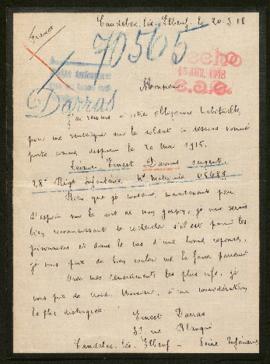 Caudebec-lès-Elbeuf, le 20.3.18
France
70565
Recho
15 AVR. 1918
Darras
Monsieur
J'ai recours à votre obligeance habituelle
pour me renseigner sur le soldat ci-dessous nommé
disparu le 20 mai 1915.
Ernest Darras
28e Régt infanterie, No Matricule
Bien que je conserve maintenant peu
d'espoir sur le sort de mon garçon, je vous serais
bien reconnaissant de rechercher s'il est parmi les
prisonniers et dans le cas d'une bonne réponse,
je vous prie de bien vouloir me la faire parvenir
Avec mes remerciements les plus vifs, je
vous prie de croire, Monsieur, à ma considération
la plus distinguée.
Ernest Darras
rue Blanqui
Caudebec-lès-Elbeuf - Seine Inférieure